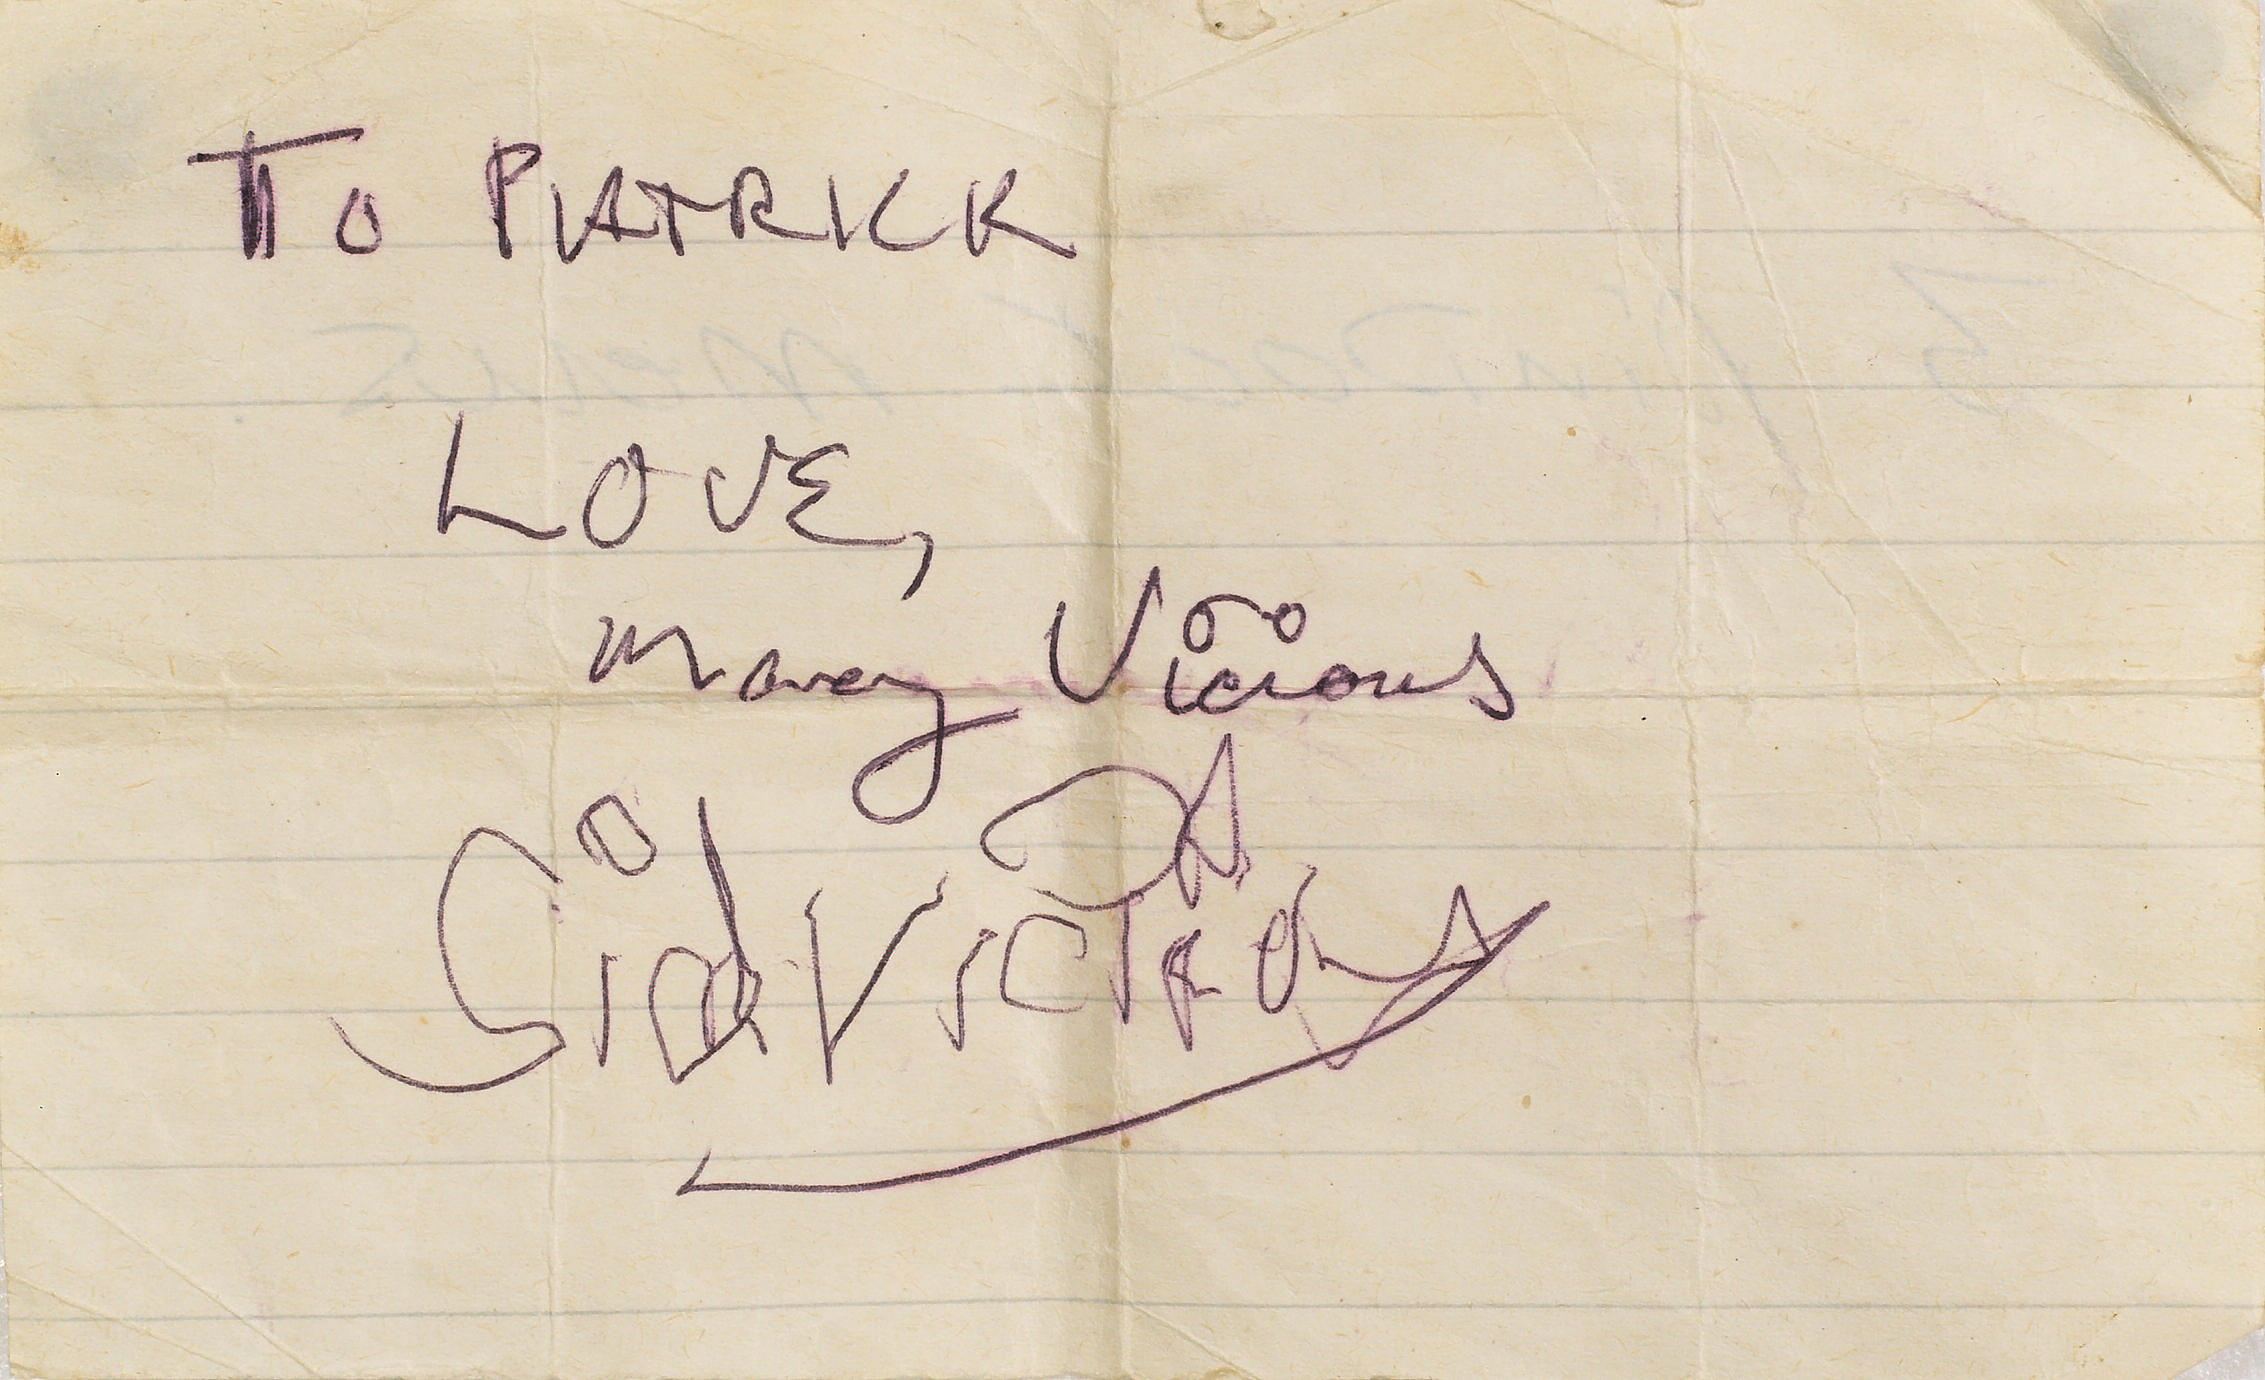 To PATRICK
LOVE,
Nancy Vicious
Sid Vicious